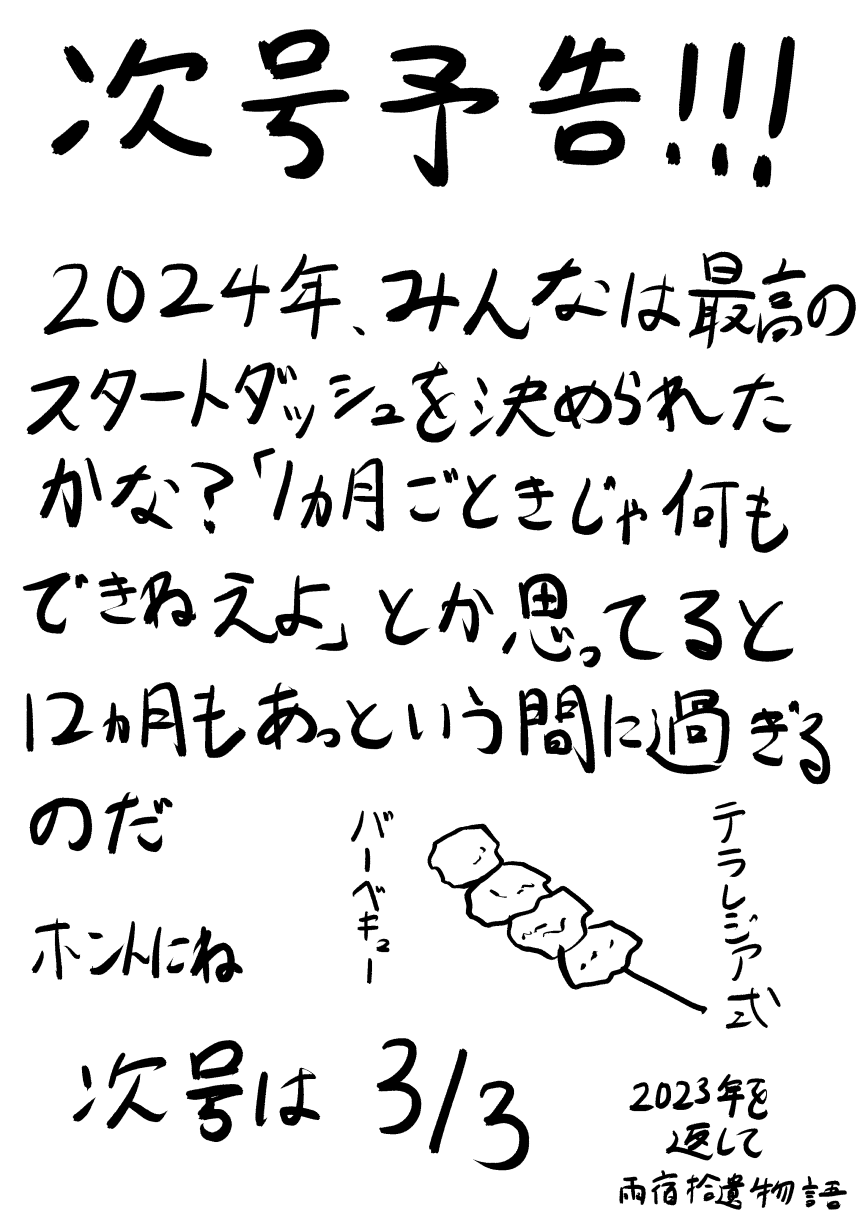 次号予告!!!
2024年、みんなは最高の
スタートダッシュを決められた
かな?「1ヵ月ごときじゃ何も
できねえよ」とか思ってると
12ヵ月もあっという間に過ぎる
のだ
テラレジア式
バーベキュー
ホントにね
次号は 3/3
2023年を
返して
雨宿拾遺物語